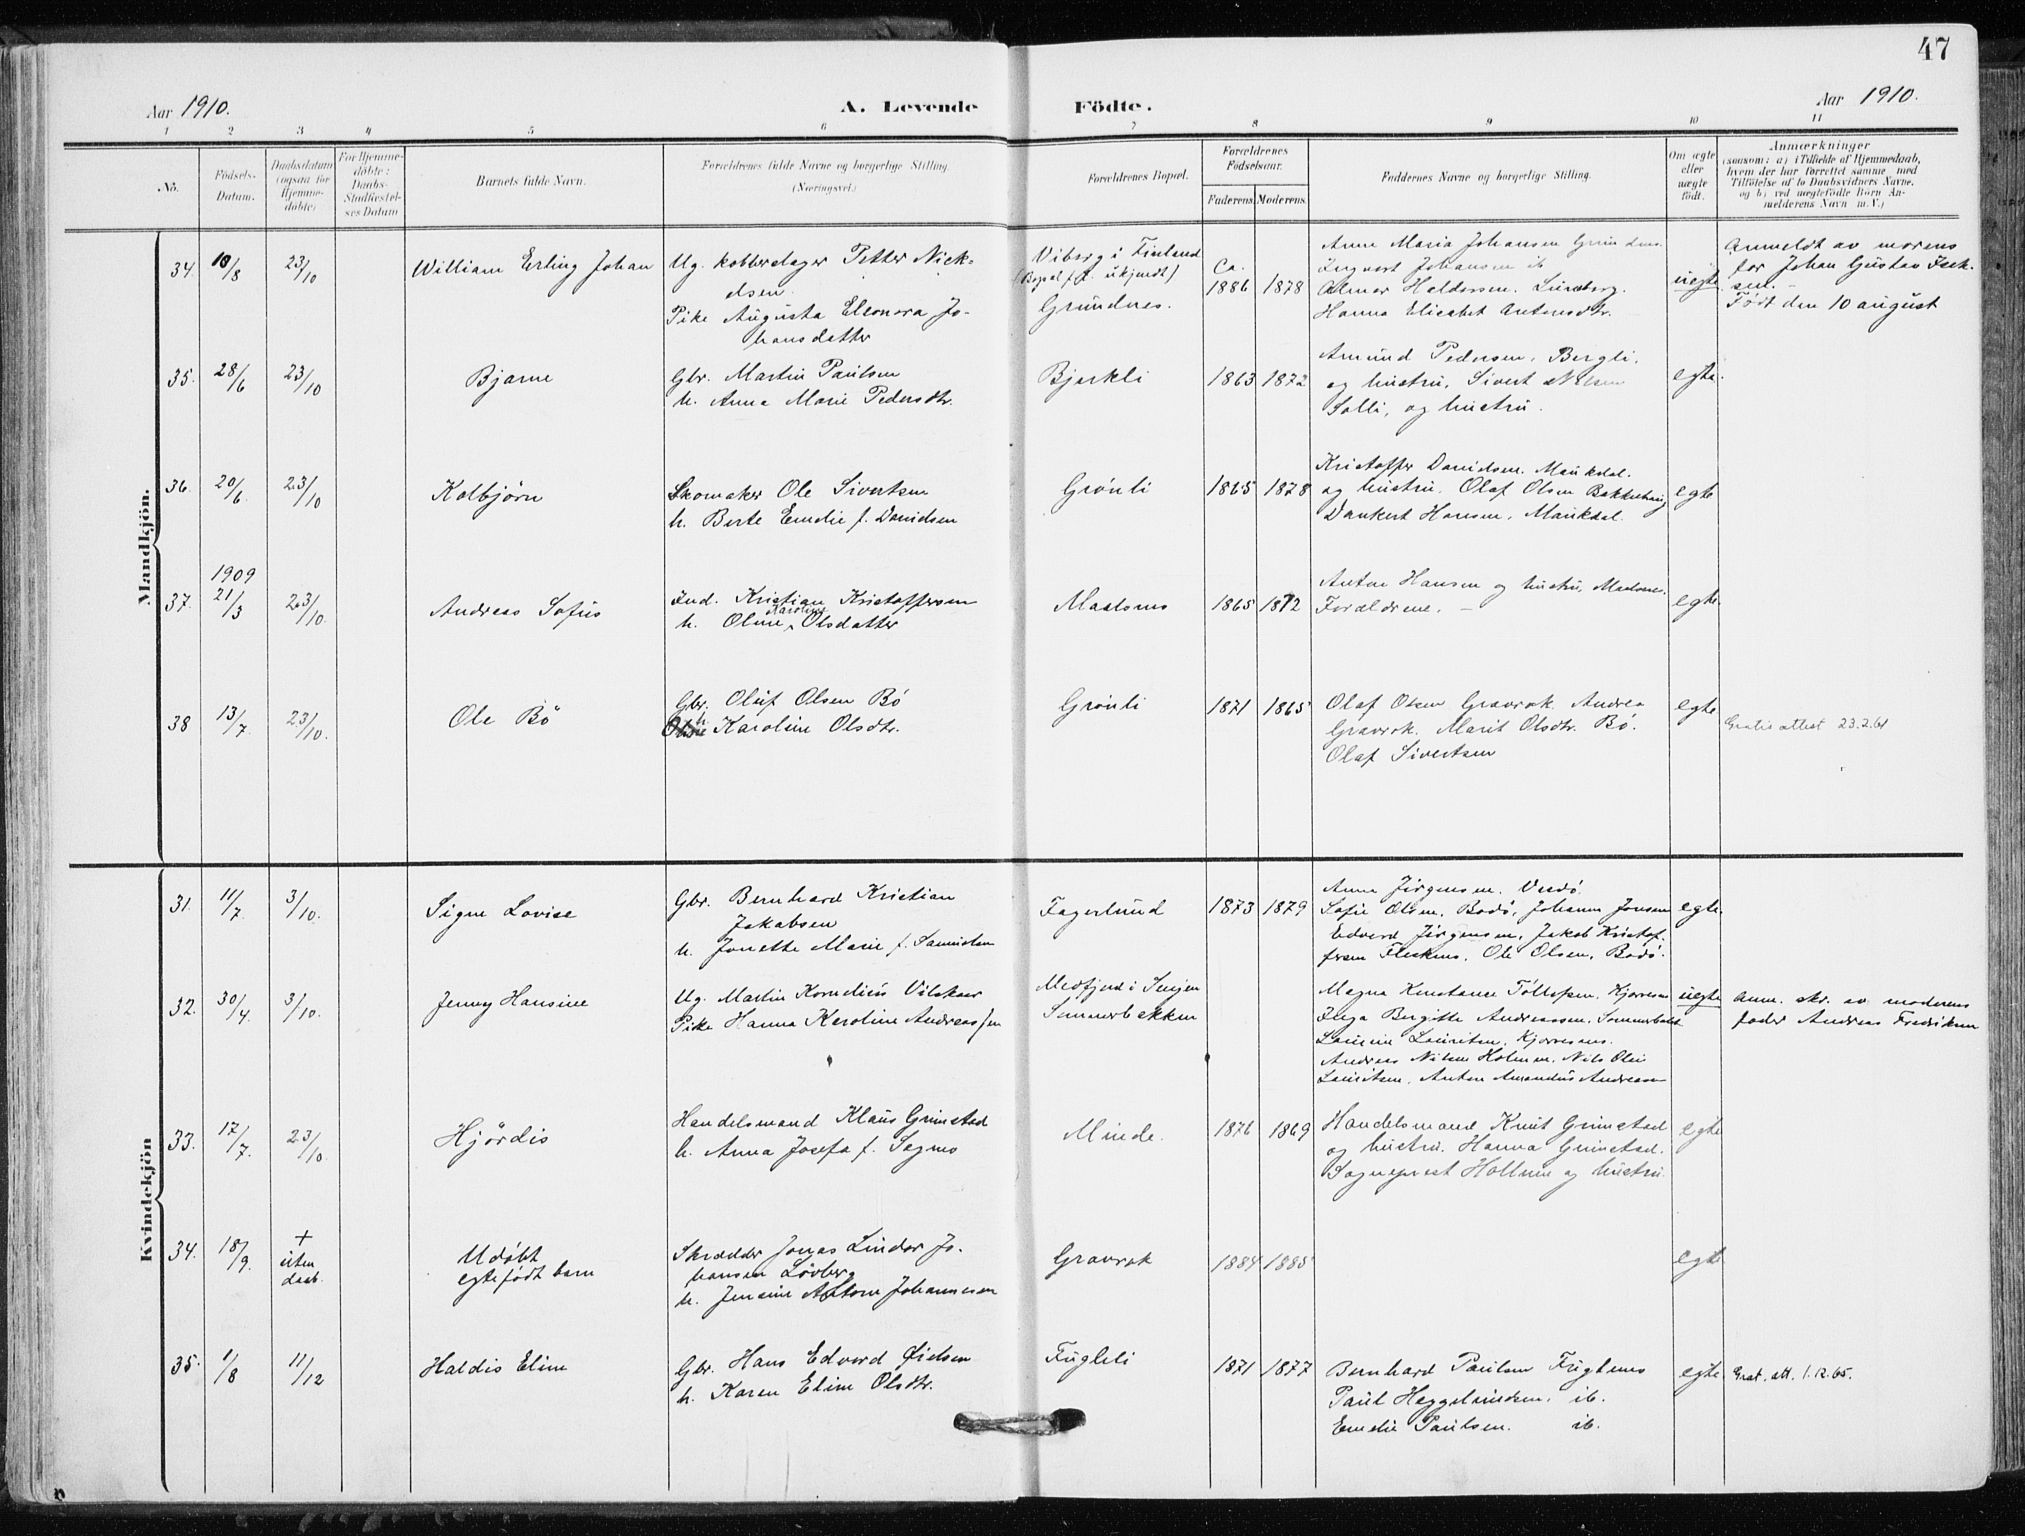 47
Aar 1910.
A. Levende Födte.
Aar 1910.
1 2 3 4 5 6 7 8 9 10 11
No.
Födsels-
Datum.
Daabsdatum
(ogsaa for
Hjemme-
döbte)
For Hjemme-
döbte:
Daabs-
Stadfæstel-
ses Datum
Barnets fulde Navn.
Forældrenes fulde Navne og borgerlige Stilling.
(Næringsvei.)
Forældrenes Bopæl.
Forældrenes
Födselsaar.
Faderens. Moderens.
Faddernes Navne og borgerlige Stilling.
Om ægte
eller
uægte
födt.
Anmærkninger
(saasom: a) i Tilfælde af Hjemmedaab,
hvem der har forrettet samme, med
Tilföielse af to Daabsvidners Navne,
og b) ved uægtefödte Börn An-
melderens Navn m. V.)
Mandkjön.
34. 10/8 23/10 William Erling Johan
Ug. kobberslager Petter Nick-
elsen
Pike Augusta Eleonora Jo-
hansdatter
Viborg i Finland
(Bopæl f. t. ukjendt)
Grundnes.
Ca.
1886 1878
Anne Maria Johansen Grundnes.
Ingvart Johansen ib
Haldorsen. Lundberg.
Hanna Elisabet Antonsdtr.
uegte
Anmeldt av morens
far Johan Gustav Isak-
sen.
Født den 10 august
35. 28/6 23/10 Bjarne
Gbr. Martin Paulsen
h. Anna Marie Pedersdtr.
Bjerkli
1863 1872
Amund Pedersen, Bergli,
og hustru, Sivert Nilsen
Solli, og hustru.
egte.
36. 20/6 23/10 Kolbjørn
Skomaker Ole Sivertsen
h. Berte Emelie f. Danielsen
Grønli
1865 1878
Kristoffer Danielsen. Maukdal.
og hustru. Olaf Olsen Bakkehaug
Dankert Hansen, Maukdal.
egte
37. 1909
21/3 23/10 Andreas Sofus
Ind. Kristian Kristoffersen
Karoline
h. Oline Olsdatter
Maalsnes
1865 1872
Anton Hansen og hustru, Maalsnes.
Forældrene. —
egte
38 13/7 23/10. Ole Bö
Gbr. Oluf Olsen Bö
h. Karoline Olsdtr.
Grönli
1871 1865
Olaf Olsen Gravrok. Andrea
Gravrok. Marit Olsdtr. Bö.
Olaf Sivertsen
egte
Gratis attest 23.2.61
Kvindekjön
31. 11/7. 3/10. Signe Lovise
Gbr. Bernhard Kristian
Jakobsen
h. Jonette Marie f. Samuelsen
Fagerlund
1873 1879
Anna Jörgensen.
Sofie Olsen, Bodö, Johanna Jonsen
Edvard Jörgensen, Jakob Kristof-
fersen Fleskmo. Ole Olsen, Bodö.
egte.
32. 30/4. 3/10. Jenny Hansine
Ug. Martin Kornelius Vilskaar
Pike Hanna Karoline Andreassen
Medfjord i Senjen
Sommerbakken
Magna Konstance Tollefsen, Kjerresnes
Inga Birgitte Andreassen, Sommerbakk
Lauritsen, Kjerresnes.
Andreas Nilsen Holmen. Nils Olai
Lauritsen. Anton Amandus Andreasen
uegte
Anm. skr. av moderens
fader Andreas Fredriksen
33. 17/7. 23/10 Hjördis
Handelsmand Klaus Grimstad
h. Anna Josefa f. Sagmo
Minde.
1876 1869
Handelsmand Knut Grimstad
og hustru. Hanna Grimstad.
Sogneprest Hollum og hustru.
egte
34. 18/9. +
uten
daab.
Udöbt
egtefödt barn
Skrædder Jonas Lindor Jo-
hansen Lövberg
h. Jensine Antone Johannesen
Gravrok
1884 1885
egte
35. 1/8 11/12 Haldis Eline
Gbr. Hans Edvard Öielsen
h. Karen Eline Olsdtr.
Fugleli
1871 1877
Bernhard Paulsen Fuglenes
Paul Heggelundsen. ib.
Emelie Paulsen. ib.
egte
Grat. att. 1.12.65.